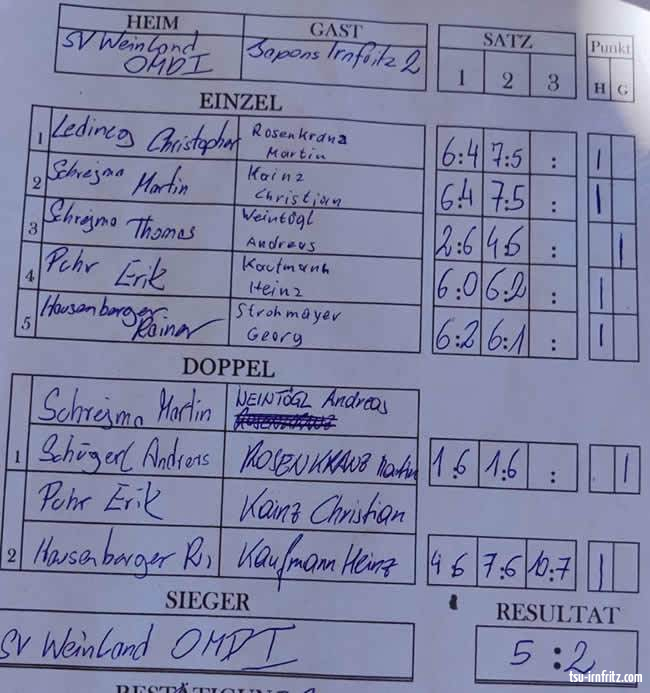 HEIM GAST SATZ Punkt
SV Weinland Sapons Irnfritz 2
OMDI 1 2 3 H G
EINZEL
1 Ledineg Christopher Rosenkranz
Martin 6:4 7:5 : |
2 Schrejma Martin Kainz
Christian 6:4 7:5 : |
3 Schrejma Thomas Weintögl
Andreas 2:6 4:6 : |
4 Puhr Erik Kaufmann
Heinz 6:0 6:2 : |
5 Hausenberger Strohmayer
Rainer Georg 6:2 6:1 : |
DOPPEL
Schrejma Martin WEINTÖGL Andreas
ROSENKRANZ
1 Schügerl Andreas ROSENKRANZ Martin 1:6 1:6 : |
Puhr Erik Kainz Christian
2 Hausenberger R. Kaufmann Heinz 4:6 7:6 10:7 |
SIEGER RESULTAT
SV Weinland OMDI 5:2
BESTÄTIGUNG
tsu-irnfritz.com